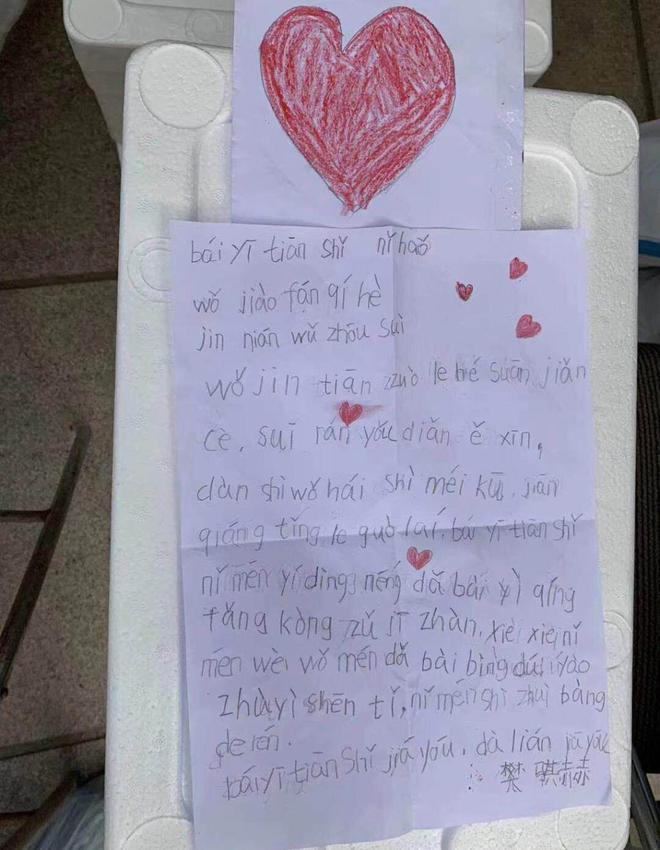 bái yī tiān shǐ nǐ hǎo
wǒ jiào fán qí hè
jīn nián wǔ zhōu suì
wǒ jin tiān zuò le hé suān jiǎn
cè, suī rán yǒu diǎn ě xīn,
dàn shì wǒ hái shì méi kū, jiān
qiáng tǐng le guò lái, bái yī tiān shǐ
nǐ mén yí dìng néng dǎ bài yì qíng
fáng kòng zǔ jī zhàn, xiè xie nǐ
mén wèi wǒ mén dǎ bài bìng dú, yào
zhù yì shēn tǐ, nǐ mén shì zhuì bàng
de rén.
bái yī tiān shǐ jiā yóu, dà lián jiā yóu
樊骐赫